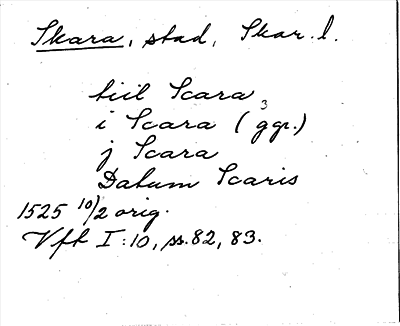 Skara, stad, Skar. l.
tiil Scara
i Scara (3 ggr.)
j Scara
Datum Scaris
1525 10/2 orig.
Vft I:10, ss. 82, 83.